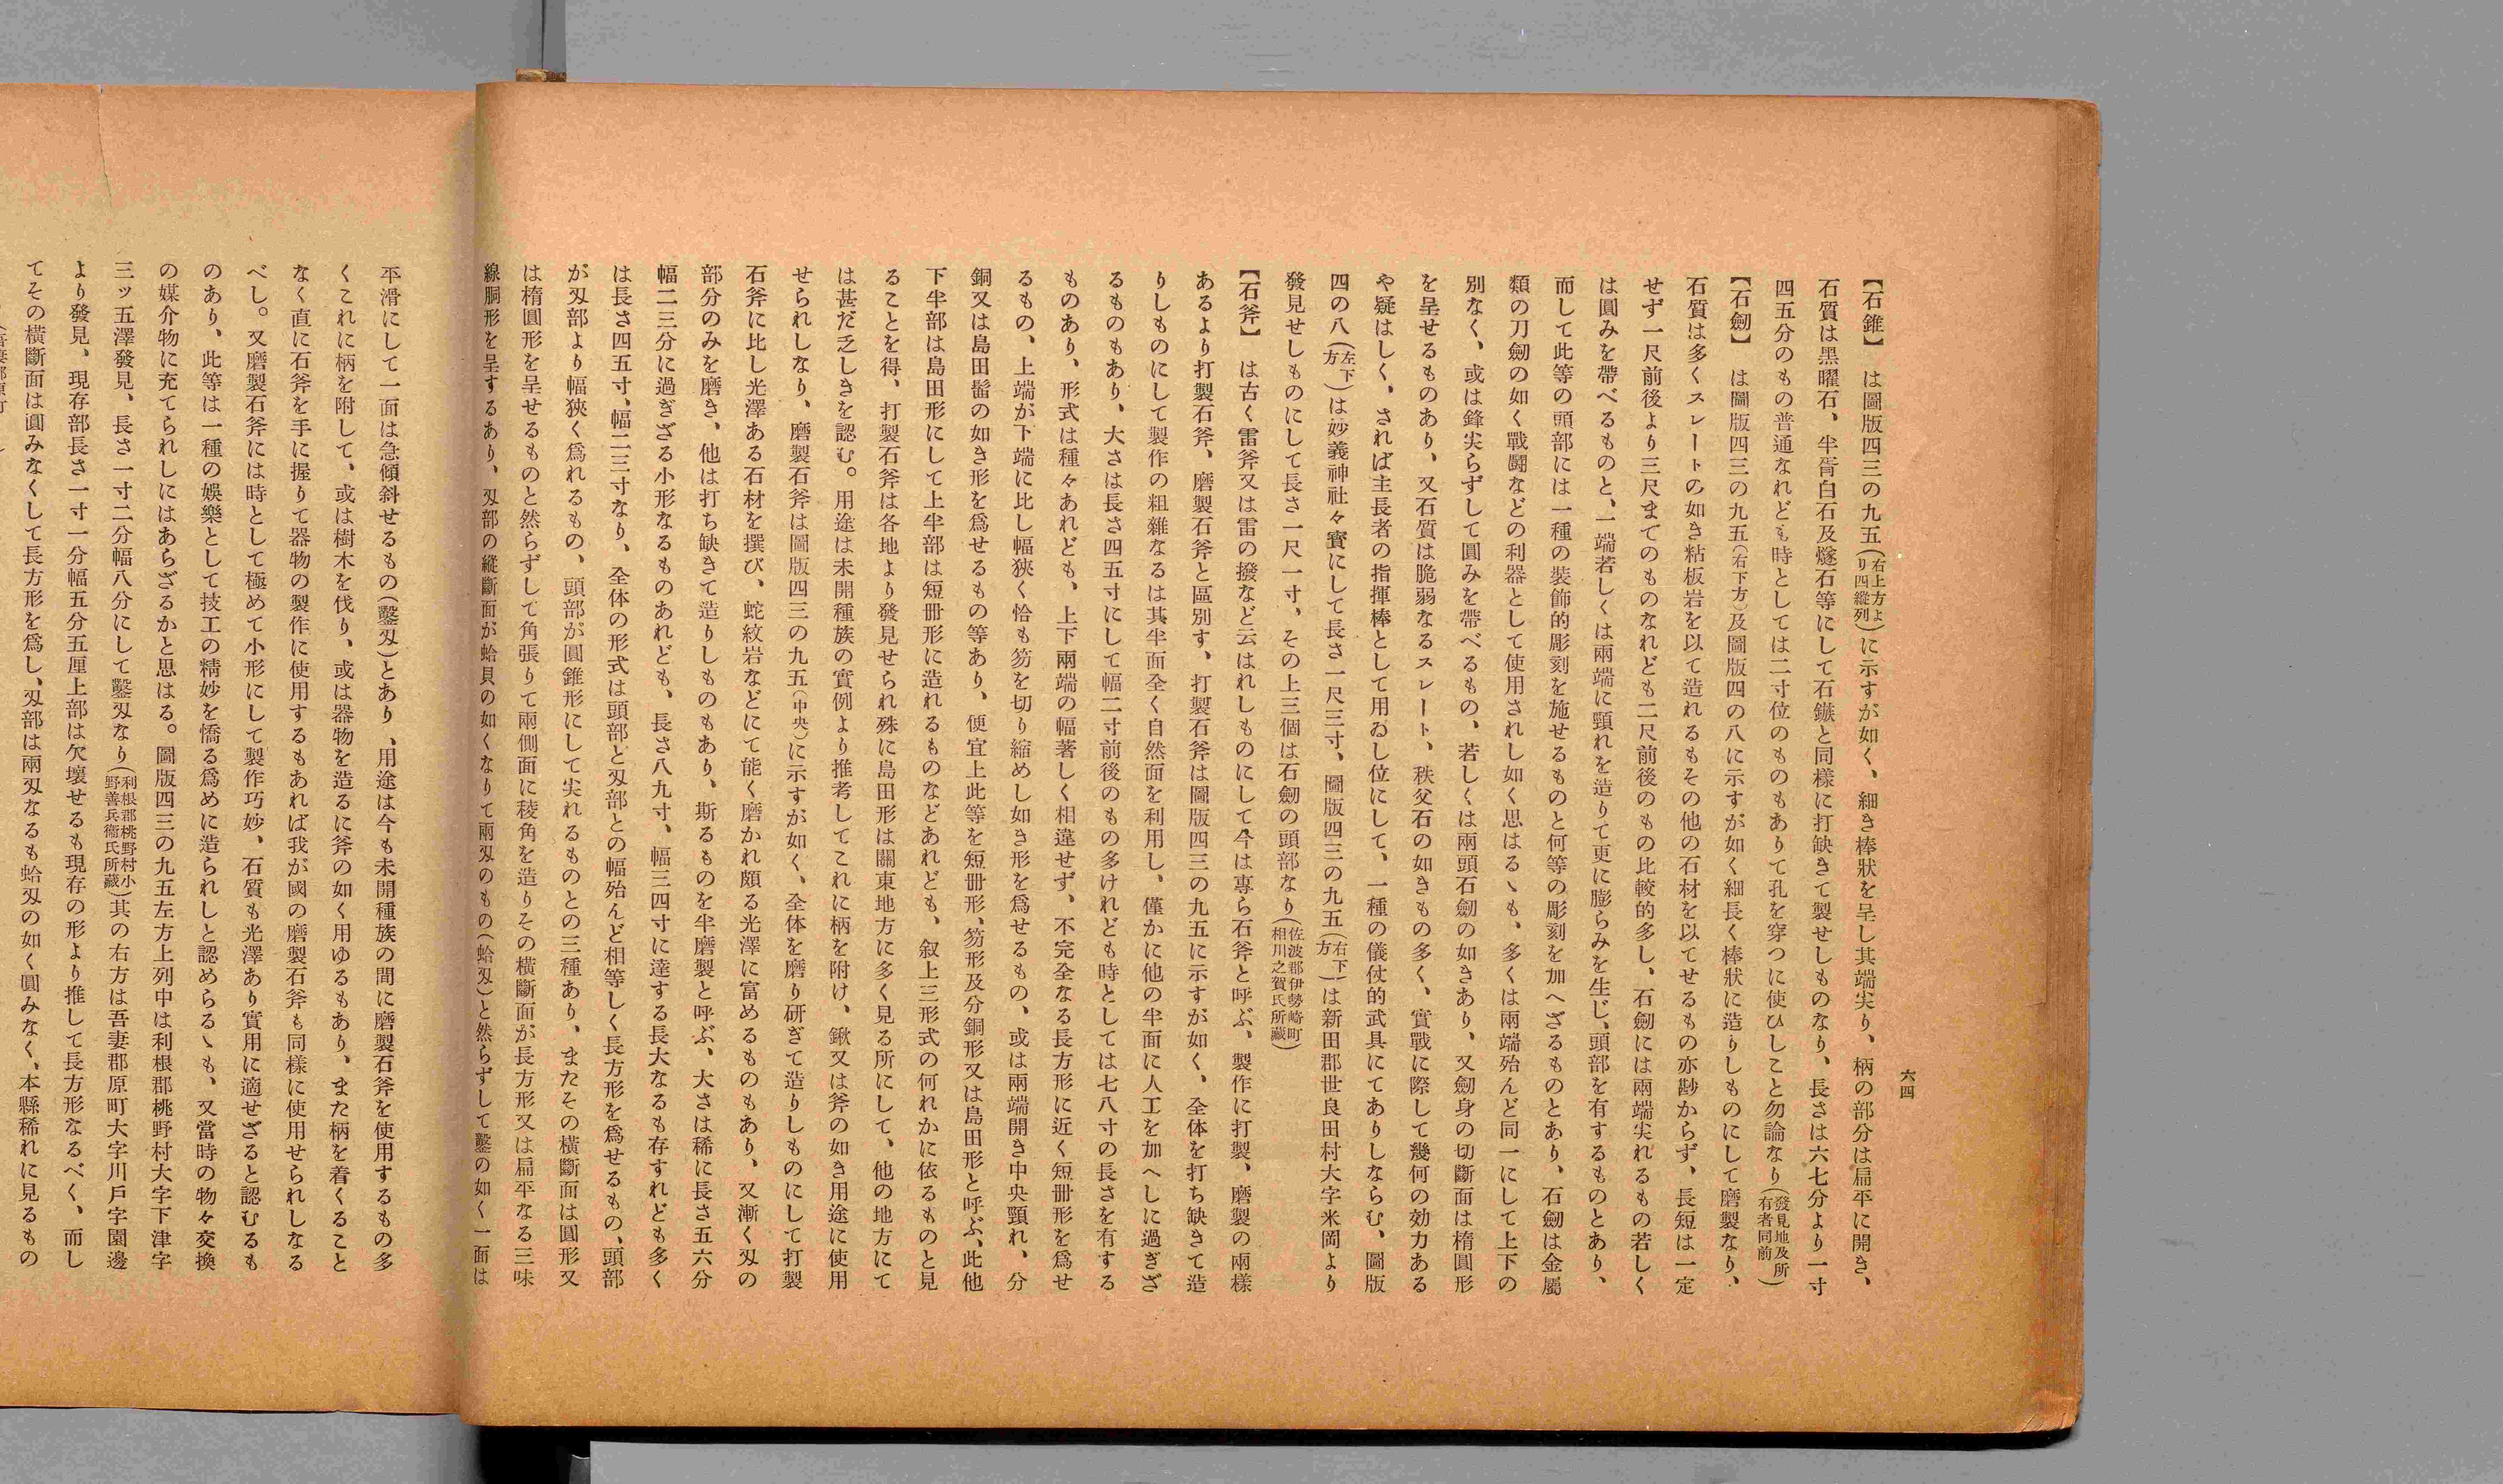 六四
【石錐】　は圖版四三の九五(右上方より四縱列)に示すが如く、細き棒狀を呈し其端尖り、柄の部分は扁平に開き、
石質は黑曜石、半脊白石及燧石等にして石鏃と同樣に打缺きて製せしものなり、長さは六七分より一寸
四五分のもの普通なれども時としては二寸位のものもありて孔を穿つに使ひしこと勿論なり(發見地及所有者同前)
【石劍】　は圖版四三の九五(右下方)及圖版四の八に示すが如く細長く棒狀に造りしものにして磨製なり、
石質は多くスレートの如き粘板岩を以て造れるもその他の石材を以てせるもの亦尠からず、長短は一定
せず一尺前後より三尺までのものなれども二尺前後のもの比較的多し、石劍には兩端尖れるもの若しく
は圓みを帶べるものと、一端若しくは兩端に頸れを造りて更に膨らみを生じ、頭部を有するものとあり、
而して此等の頭部には一種の裝飾的彫刻を施せるものと何等の彫刻を加へざるものとあり、石劍は金屬
類の刀劍の如く戰鬪などの利器として使用されし如く思はるゝも、多くは兩端殆んど同一にして上下の
別なく、或は鋒尖らずして圓みを帶べるもの、若しくは兩頭石劍の如きあり、又劍身の切斷面は楕圓形
を呈せるものあり、又石質は脆弱なるスレート、秩父石の如きもの多く、實戰に際して幾何の効力ある
や疑はしく、されば主長者の指揮棒として用ゐし位にして、一種の儀仗的武具にてありしならむ、圖版
四の八(左下方)は妙義神社々寶にして長さ一尺三寸、圖版四三の九五(右下方)は新田郡世良田村大字米岡より
發見せしものにして長さ一尺一寸、その上三個は石劍の頭部なり(佐波郡伊勢崎町相川之賀氏所藏)
【石斧】　は古く雷斧又は雷の撥など云はれしものにして今は專ら石斧と呼ぶ、製作に打製、磨製の兩樣
あるより打製石斧、磨製石斧と區別す、打製石斧は圖版四三の九五に示すが如く、全体を打ち缺きて造
りしものにして製作の粗雜なるは其半面全く自然面を利用し、僅かに他の半面に人工を加へしに過ぎざ
るものもあり、大さは長さ四五寸にして幅二寸前後のもの多けれども時としては七八寸の長さを有する
ものあり、形式は種々あれども、上下兩端の幅著しく相違せず、不完全なる長方形に近く短册形を爲せ
るもの、上端が下端に比し幅狹く恰も笏を切り縮めし如き形を爲せるもの、或は兩端開き中央頸れ、分
銅又は島田髷の如き形を爲せるもの等あり、便宜上此等を短册形、笏形及分銅形又は島田形と呼ぶ、此他
下半部は島田形にして上半部は短册形に造れるものなどあれども、叙上三形式の何れかに依るものと見
ることを得、打製石斧は各地より發見せられ殊に島田形は關東地方に多く見る所にして、他の地方にて
は甚だ乏しきを認む。用途は未開種族の實例より推考してこれに柄を附け、鍬又は斧の如き用途に使用
せられしなり、磨製石斧は圖版四三の九五(中央)に示すが如く、全体を磨り研ぎて造りしものにして打製
石斧に比し光澤ある石材を撰び、蛇紋岩などにて能く磨かれ頗る光澤に富めるものもあり、又漸く刄の
部分のみを磨き、他は打ち缺きて造りしものもあり、斯るものを半磨製と呼ぶ、大さは稀に長さ五六分
幅二三分に過ぎざる小形なるものあれども、長さ八九寸、幅三四寸に達する長大なるも存すれども多く
は長さ四五寸、幅二三寸なり、全体の形式は頭部と刄部との幅殆んど相等しく長方形を爲せるもの、頭部
が刄部より幅狹く爲れるもの、頭部が圓錐形にして尖れるものとの三種あり、またその橫斷面は圓形又
は楕圓形を呈せるものと然らずして角張りて兩側面に稜角を造りその橫斷面が長方形又は扁平なる三味
線胴形を呈するあり、刄部の縱斷面が蛤貝の如くなりて兩刄のもの(蛤刄)と然らずして鑿の如く一面は
平滑にして一面は急傾斜せるもの(鑿刄)とあり、用途は今も未開種族の間に磨製石斧を使用するもの多
くこれに柄を附して、或は樹木を伐り、或は器物を造るに斧の如く用ゆるもあり、また柄を着くること
なく直に石斧を手に握りて器物の製作に使用するもあれば我が國の磨製石斧も同樣に使用せられしなる
べし。又磨製石斧には時として極めて小形にして製作巧妙、石質も光澤あり實用に適せざると認むるも
のあり、此等は一種の娛樂として技工の精妙を憍る爲めに造られしと認めらるゝも、又當時の物々交換
の媒介物に充てられしにはあらざるかと思はる。圖版四三の九五左方上列中は利根郡桃野村大字下津字
三ッ五澤發見、長さ一寸二分幅八分にして鑿刄なり(利根郡桃野村小野善兵衞氏所藏)其の右方は吾妻郡原町大字川戶字園邊
より發見、現存部長さ一寸一分幅五分五厘上部は欠壞せるも現存の形より推して長方形なるべく、而し
てその橫斷面は圓みなくして長方形を爲し、刄部は兩刄なるも蛤刄の如く圓みなく、本縣稀れに見るもの